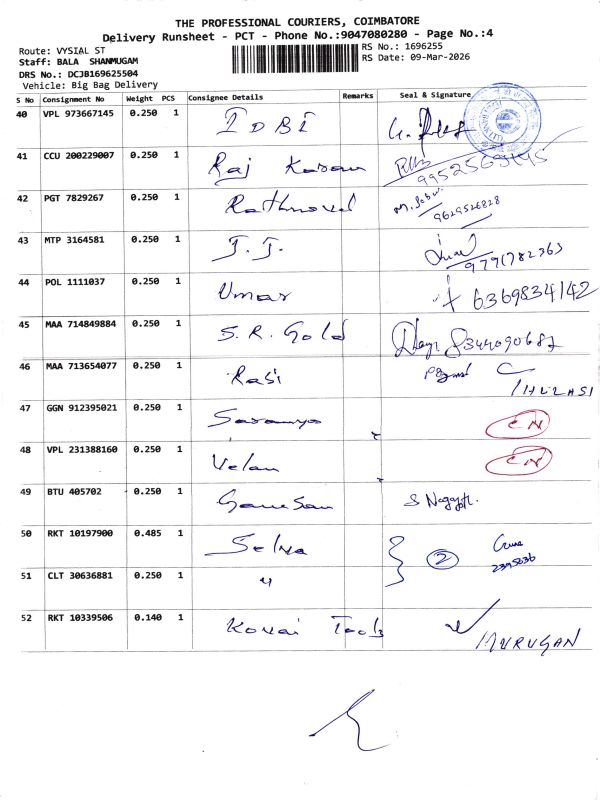 THE PROFESSIONAL COURIERS, COIMBATORE
Delivery Runsheet - PCT - Phone No.:9047080280 - Page No.:4
Route: VYSIAL ST
RS No.: 1696255
Staff: BALA SHANMUGAM
RS Date: 09-Mar-2026
DRS No.: DCJB169625504
Vehicle: Big Bag Delivery
S No Consignment No Weight PCS Consignee Details Remarks Seal & Signature
40 VPL 973667145 0.250 1 IDBI
41 CCU 200229007 0.250 1 Raj Karan 9952569145
42 PGT 7829267 0.250 1 9629526828
43 MTP 3164581 0.250 1 J.J. 9791782363
44 POL 1111037 0.250 1 Umar 6369834142
45 MAA 714849884 0.250 1 S.R. Gold 8344090687
46 MAA 713654077 0.250 1 Rasi
47 GGN 912395021 0.250 1 Saranya CN
48 VPL 231388160 0.250 1 Velan CN
49 BTU 405702 0.250 1 Ganesan
50 RKT 10197900 0.485 1 Selva 2
2395036
51 CLT 30636881 0.250 1 "
52 RKT 10339506 0.140 1 Kovai Tools MURUGAN